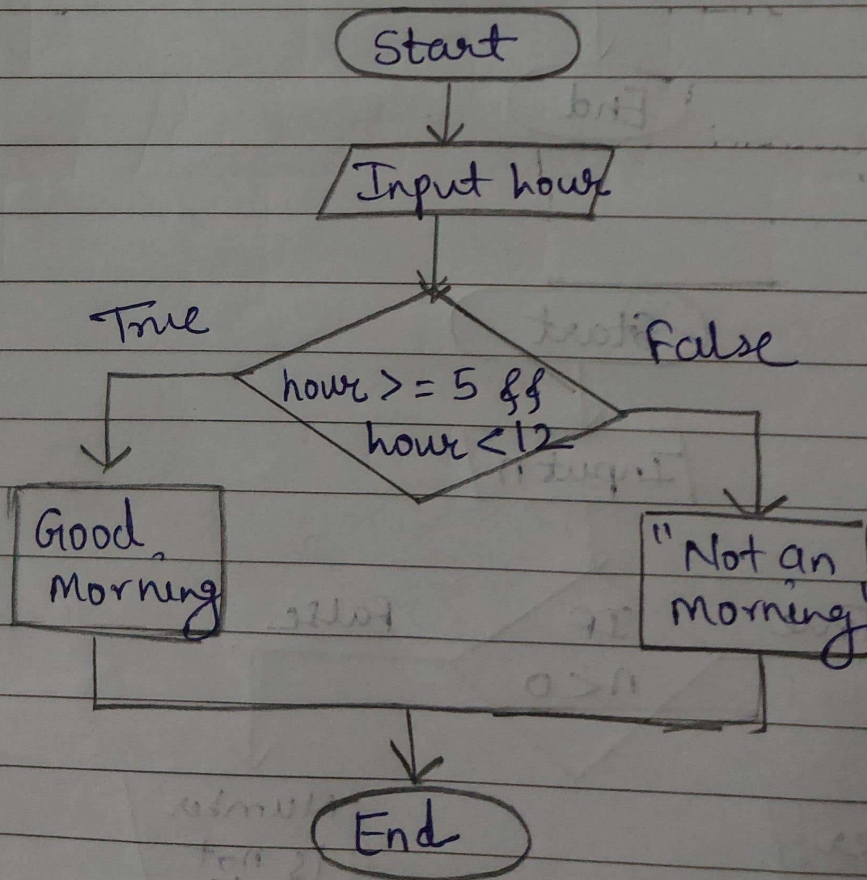 Start
Input hour
True
False
hour >= 5 &&
hour < 12
Good
Morning
"Not an
Morning"
End